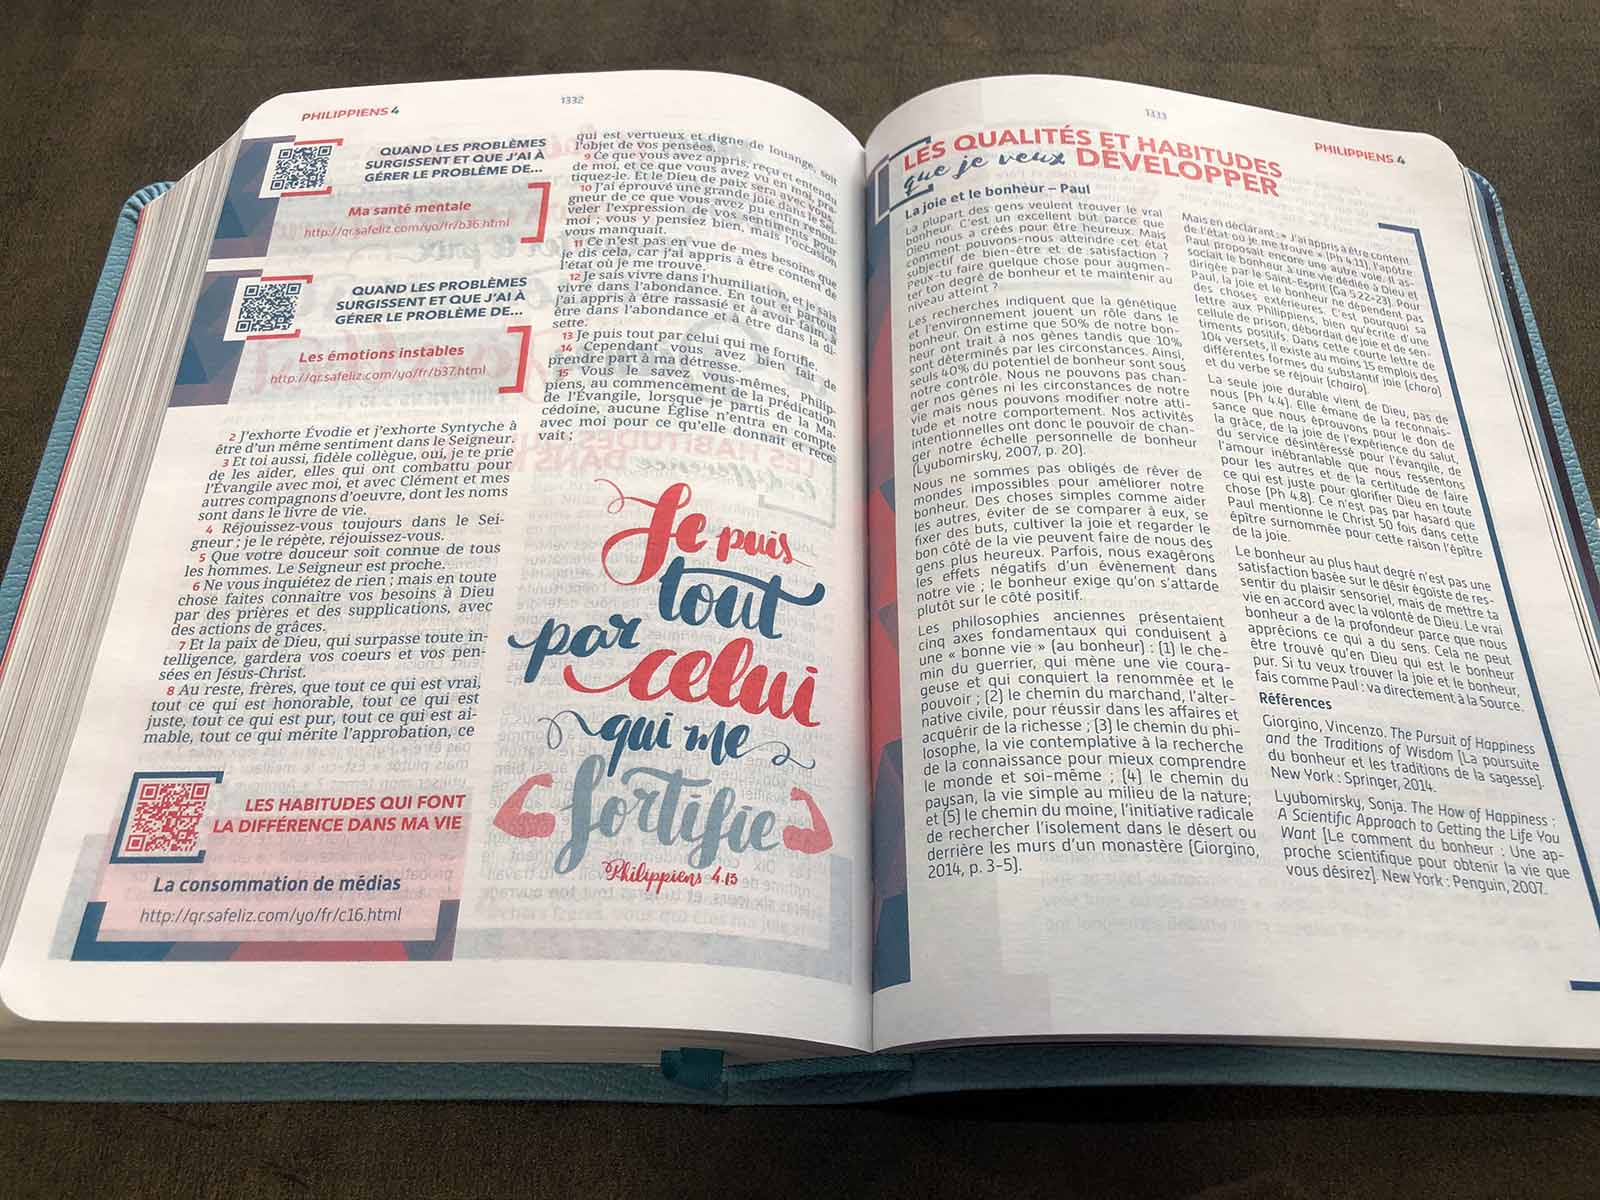 PHILIPPIENS 4
1332
QUAND LES PROBLÈMES
SURGISSENT ET QUE J'AI À
GÉRER LE PROBLÈME DE...
Ma santé mentale
http://qr.safeliz.com/yo/fr/b36.html
QUAND LES PROBLÈMES
SURGISSENT ET QUE J'AI À
GÉRER LE PROBLÈME DE...
Les émotions instables
http://qr.safeliz.com/yo/fr/b37.html
2 J'exhorte Évodie et j'exhorte Syntyche à
être d'un même sentiment dans le Seigneur.
3 Et toi aussi, fidèle collègue, oui, je te prie
de les aider, elles qui ont combattu pour
l'Évangile avec moi, et avec Clément et mes
autres compagnons d'oeuvre, dont les noms
sont dans le livre de vie.
4 Réjouissez-vous toujours dans le Sei-
gneur ; je le répète, réjouissez-vous.
5 Que votre douceur soit connue de tous
les hommes. Le Seigneur est proche.
6 Ne vous inquiétez de rien ; mais en toute
chose faites connaître vos besoins à Dieu
par des prières et des supplications, avec
des actions de grâces.
7 Et la paix de Dieu, qui surpasse toute in-
telligence, gardera vos coeurs et vos pen-
sées en Jésus-Christ.
8 Au reste, frères, que tout ce qui est vrai,
tout ce qui est honorable, tout ce qui est
juste, tout ce qui est pur, tout ce qui est ai-
mable, tout ce qui mérite l'approbation, ce
LES HABITUDES QUI FONT
LA DIFFÉRENCE DANS MA VIE
La consommation de médias
http://qr.safeliz.com/yo/fr/c16.html
qui est vertueux et digne de louange, soit
l'objet de vos pensées.
9 Ce que vous avez appris, reçu et entendu
de moi, et ce que vous avez vu en moi, pra-
tiquez-le. Et le Dieu de paix sera avec vous.
10 J'ai éprouvé une grande joie dans le Sei-
gneur de ce que vous avez pu enfin renou-
veler l'expression de vos sentiments pour
moi ; vous y pensiez bien, mais l'occasion
vous manquait.
11 Ce n'est pas en vue de mes besoins que
je dis cela, car j'ai appris à être content de
l'état où je me trouve.
12 Je sais vivre dans l'humiliation, et je sais
vivre dans l'abondance. En tout et partout
j'ai appris à être rassasié et à avoir faim, à
être dans l'abondance et à être dans la di-
sette.
13 Je puis tout par celui qui me fortifie.
14 Cependant vous avez bien fait de
prendre part à ma détresse.
15 Vous le savez vous-mêmes, Philip-
piens, au commencement de la prédication
de l'Évangile, lorsque je partis de la Ma-
cédoine, aucune Église n'entra en compte
avec moi pour ce qu'elle donnait et rece
vait ;
Je puis
tout
par
celui
qui me
fortifie
Philippiens 4.13
1333
PHILIPPIENS 4
LES QUALITÉS ET HABITUDES
que je veux DÉVELOPPER
La joie et le bonheur – Paul
La plupart des gens veulent trouver le vrai
bonheur. C'est un excellent but parce que
Dieu nous a créés pour être heureux. Mais
comment pouvons-nous atteindre cet état
subjectif de bien-être et de satisfaction ?
Peux-tu faire quelque chose pour augmen-
ter ton degré de bonheur et te maintenir au
niveau atteint ?
Les recherches indiquent que la génétique
et l'environnement jouent un rôle dans le
bonheur. On estime que 50% de notre bon-
heur ont trait à nos gènes tandis que 10%
sont déterminés par les circonstances. Ainsi,
seuls 40% du potentiel de bonheur sont sous
notre contrôle. Nous ne pouvons pas chan-
ger nos gènes ni les circonstances de notre
vie mais nous pouvons modifier notre atti-
tude et notre comportement. Nos activités
intentionnelles ont donc le pouvoir de chan-
ger notre échelle personnelle de bonheur
[Lyubomirsky, 2007, p. 20].
Nous ne sommes pas obligés de rêver de
mondes impossibles pour améliorer notre
bonheur. Des choses simples comme aider
les autres, éviter de se comparer à eux, se
fixer des buts, cultiver la joie et regarder le
bon côté de la vie peuvent faire de nous des
gens plus heureux. Parfois, nous exagérons
les effets négatifs d'un évènement dans
notre vie ; le bonheur exige qu'on s'attarde
plutôt sur le côté positif.
Les philosophies anciennes présentaient
cinq axes fondamentaux qui conduisent à
une « bonne vie » (au bonheur) : (1) le che-
min du guerrier, qui mène une vie coura-
geuse et qui conquiert la renommée et le
pouvoir ; [2] le chemin du marchand, l'alter-
native civile, pour réussir dans les affaires et
acquérir de la richesse ; [3] le chemin du phi-
losophe, la vie contemplative à la recherche
de la connaissance pour mieux comprendre
le monde et soi-même ; [4] le chemin du
paysan, la vie simple au milieu de la nature;
et [5] le chemin du moine, l'initiative radicale
de rechercher l'isolement dans le désert ou
derrière les murs d'un monastère [Giorgino,
2014, p. 3–5].
Mais en déclarant : « J'ai appris à être content
de l'état où je me trouve » (Ph 4.11), l'apôtre
Paul proposait encore une autre voie. Il as-
sociait le bonheur à une vie dédiée à Dieu et
dirigée par le Saint-Esprit (Ga 5.22-23). Pour
Paul, la joie et le bonheur ne dépendent pas
des choses extérieures. C'est pourquoi sa
lettre aux Philippiens, bien qu'écrite d'une
cellule de prison, débordait de joie et de sen-
timents positifs. Dans cette courte lettre de
104 versets, il existe au moins 15 emplois des
différentes formes du substantif joie (chara)
et du verbe se réjouir (chairo).
La seule joie durable vient de Dieu, pas de
nous (Ph 4.4). Elle émane de la reconnais-
sance que nous éprouvons pour le don de
la grâce, de la joie de l'expérience du salut,
du service désintéressé pour l'évangile, de
l'amour inébranlable que nous ressentons
pour les autres et de la certitude de faire
ce qui est juste pour glorifier Dieu en toute
chose (Ph 4.8). Ce n'est pas par hasard que
Paul mentionne le Christ 50 fois dans cette
épître surnommée pour cette raison l'épître
de la joie.
Le bonheur au plus haut degré n'est pas une
satisfaction basée sur le désir égoïste de res-
sentir du plaisir sensoriel, mais de mettre ta
vie en accord avec la volonté de Dieu. Le vrai
bonheur a de la profondeur parce que nous
apprécions ce qui a du sens. Cela ne peut
être trouvé qu'en Dieu qui est le bonheur
pur. Si tu veux trouver la joie et le bonheur,
fais comme Paul : va directement à la Source.
Références
Giorgino, Vincenzo. The Pursuit of Happiness
and the Traditions of Wisdom [La poursuite
du bonheur et les traditions de la sagesse].
New York : Springer, 2014.
Lyubomirsky, Sonja. The How of Happiness :
A Scientific Approach to Getting the Life You
Want [Le comment du bonheur : Une ap-
proche scientifique pour obtenir la vie que
vous désirez]. New York : Penguin, 2007.